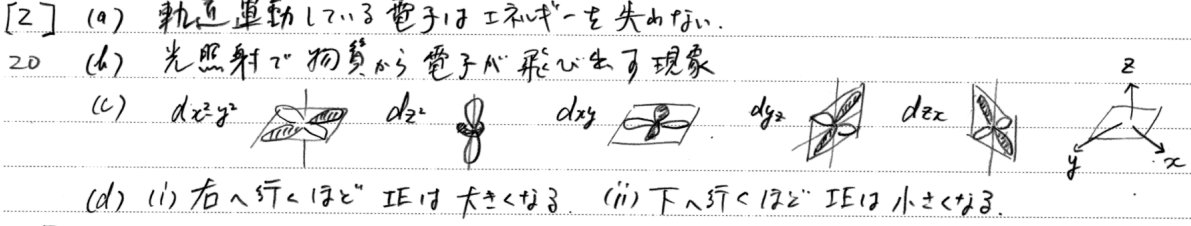 [2] (a) 軌道運動している電子はエネルギーを失わない.
20 (b) 光照射で物質から電子が飛び出す現象
(c) dx²-y² dz² dxy dyz dzx z y x
(d) (i) 右へ行くほど IEは大きくなる. (ii) 下へ行くほど IEは小さくなる.